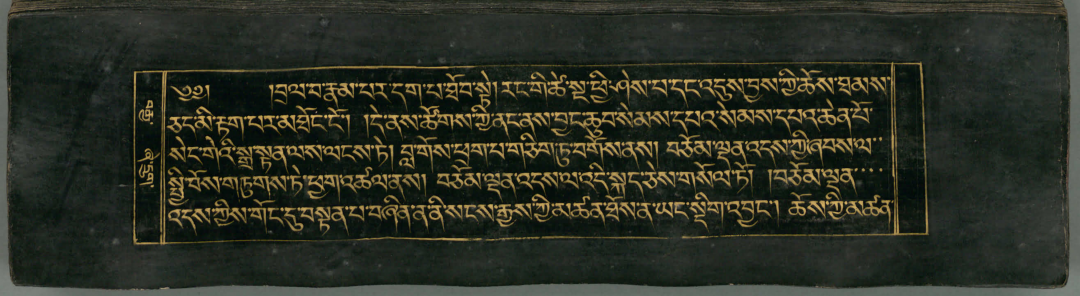 ༄༅། །བྲལ་བ་རྣམ་པར་དག་པ་ཐོབ་སྟེ། རང་གི་ཚེ་སྔ་ཕྱི་ཤེས་པ་དང་འདུས་བྱས་ཀྱི་ཆོས་ཐམས་
ཅད་མི་རྟག་པར་མཐོང་ངོ་། །དེ་ནས་ཚོགས་ཀྱི་ནང་ནས་བྱང་ཆུབ་སེམས་དཔའ་སེམས་དཔའ་ཆེན་པོ་
སེང་གེའི་སྒྲ་སྟན་ལས་ལངས་ཏེ། བླ་གོས་ཕྲག་པ་གཅིག་ཏུ་བགོས་ནས། བཅོམ་ལྡན་འདས་ཀྱི་ཞབས་ལ་
སྤྱི་བོས་གཏུགས་ཏེ་ཕྱག་འཚལ་ནས། བཅོམ་ལྡན་འདས་ལ་འདི་སྐད་ཅེས་གསོལ་ཏོ། །བཅོམ་ལྡན་
འདས་ཀྱིས་གོང་དུ་བསྟན་པ་བཞིན་ན་ནི་སངས་རྒྱས་ཀྱི་མཚན་ཐོས་ན་ཡང་སྡིག་འབྱང་། ཆོས་ཀྱི་མཚན་